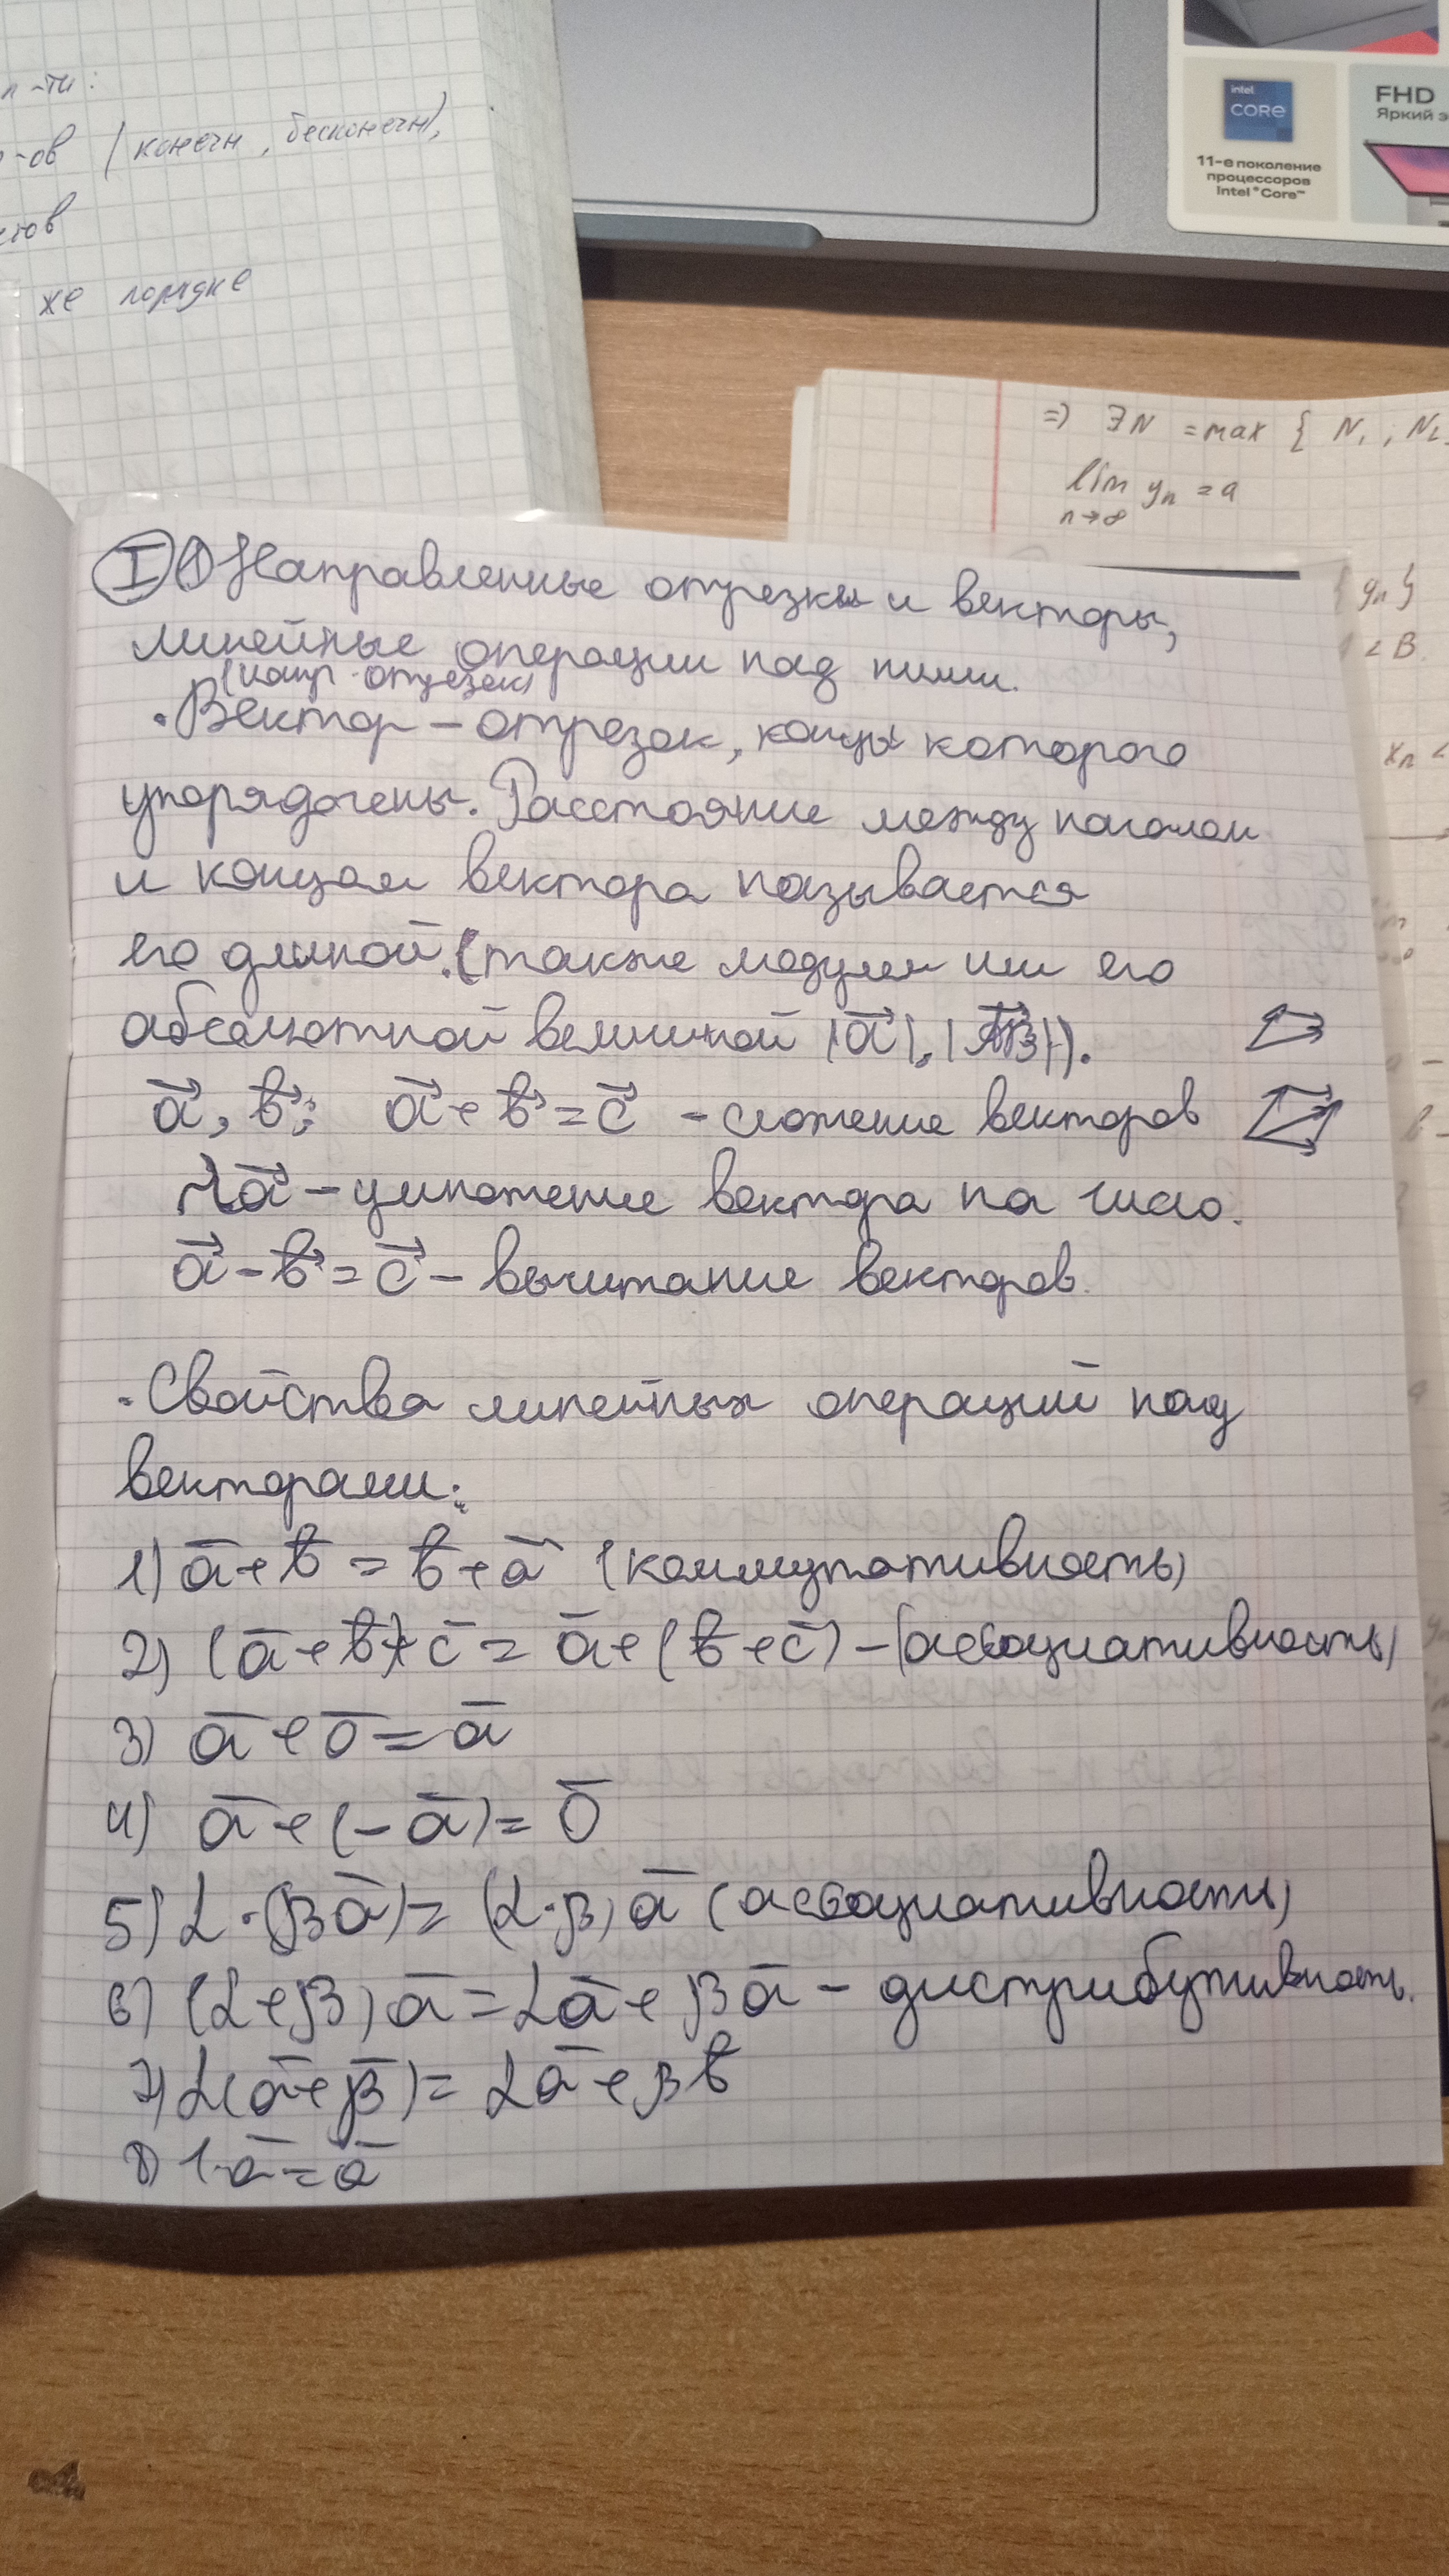 л-ти:
-ов (конечн, бесконечн),
же порядке
intel
CORE
11-е поколение
процессоров
Intel® Core™
FHD
Яркий э
=> ∃N = max { N₁, N₂
lim yₙ = a
n→∞
yₙ }
∠ B
xₙ <
I ① Направленные отрезки и векторы,
линейные операции над ними.
(напр. отрезок)
• Вектор – отрезок, концы которого
упорядочены. Расстояние между началом
и концом вектора называется
его длиной. (также модулем или его
абсолютной величиной |a⃗|, |A⃗B⃗|).
a⃗, b⃗; a⃗ + b⃗ = c⃗ – сложение векторов
λa⃗ – умножение вектора на число.
a⃗ – b⃗ = c⃗ – вычитание векторов.
• Свойства линейных операций над
векторами:
1) a̅ + b̅ = b̅ + a̅ (коммутативность)
2) (a̅ + b̅) + c̅ = a̅ + (b̅ + c̅) – (ассоциативность)
3) a̅ + 0̅ = a̅
4) a̅ + (–a̅) = 0̅
5) α · (βa̅) = (α · β) a̅ (ассоциативность)
6) (α + β) a̅ = αa̅ + βa̅ – дистрибутивность.
7) α(a̅ + β̅) = αa̅ + βb̅
8) 1·a̅ = a̅